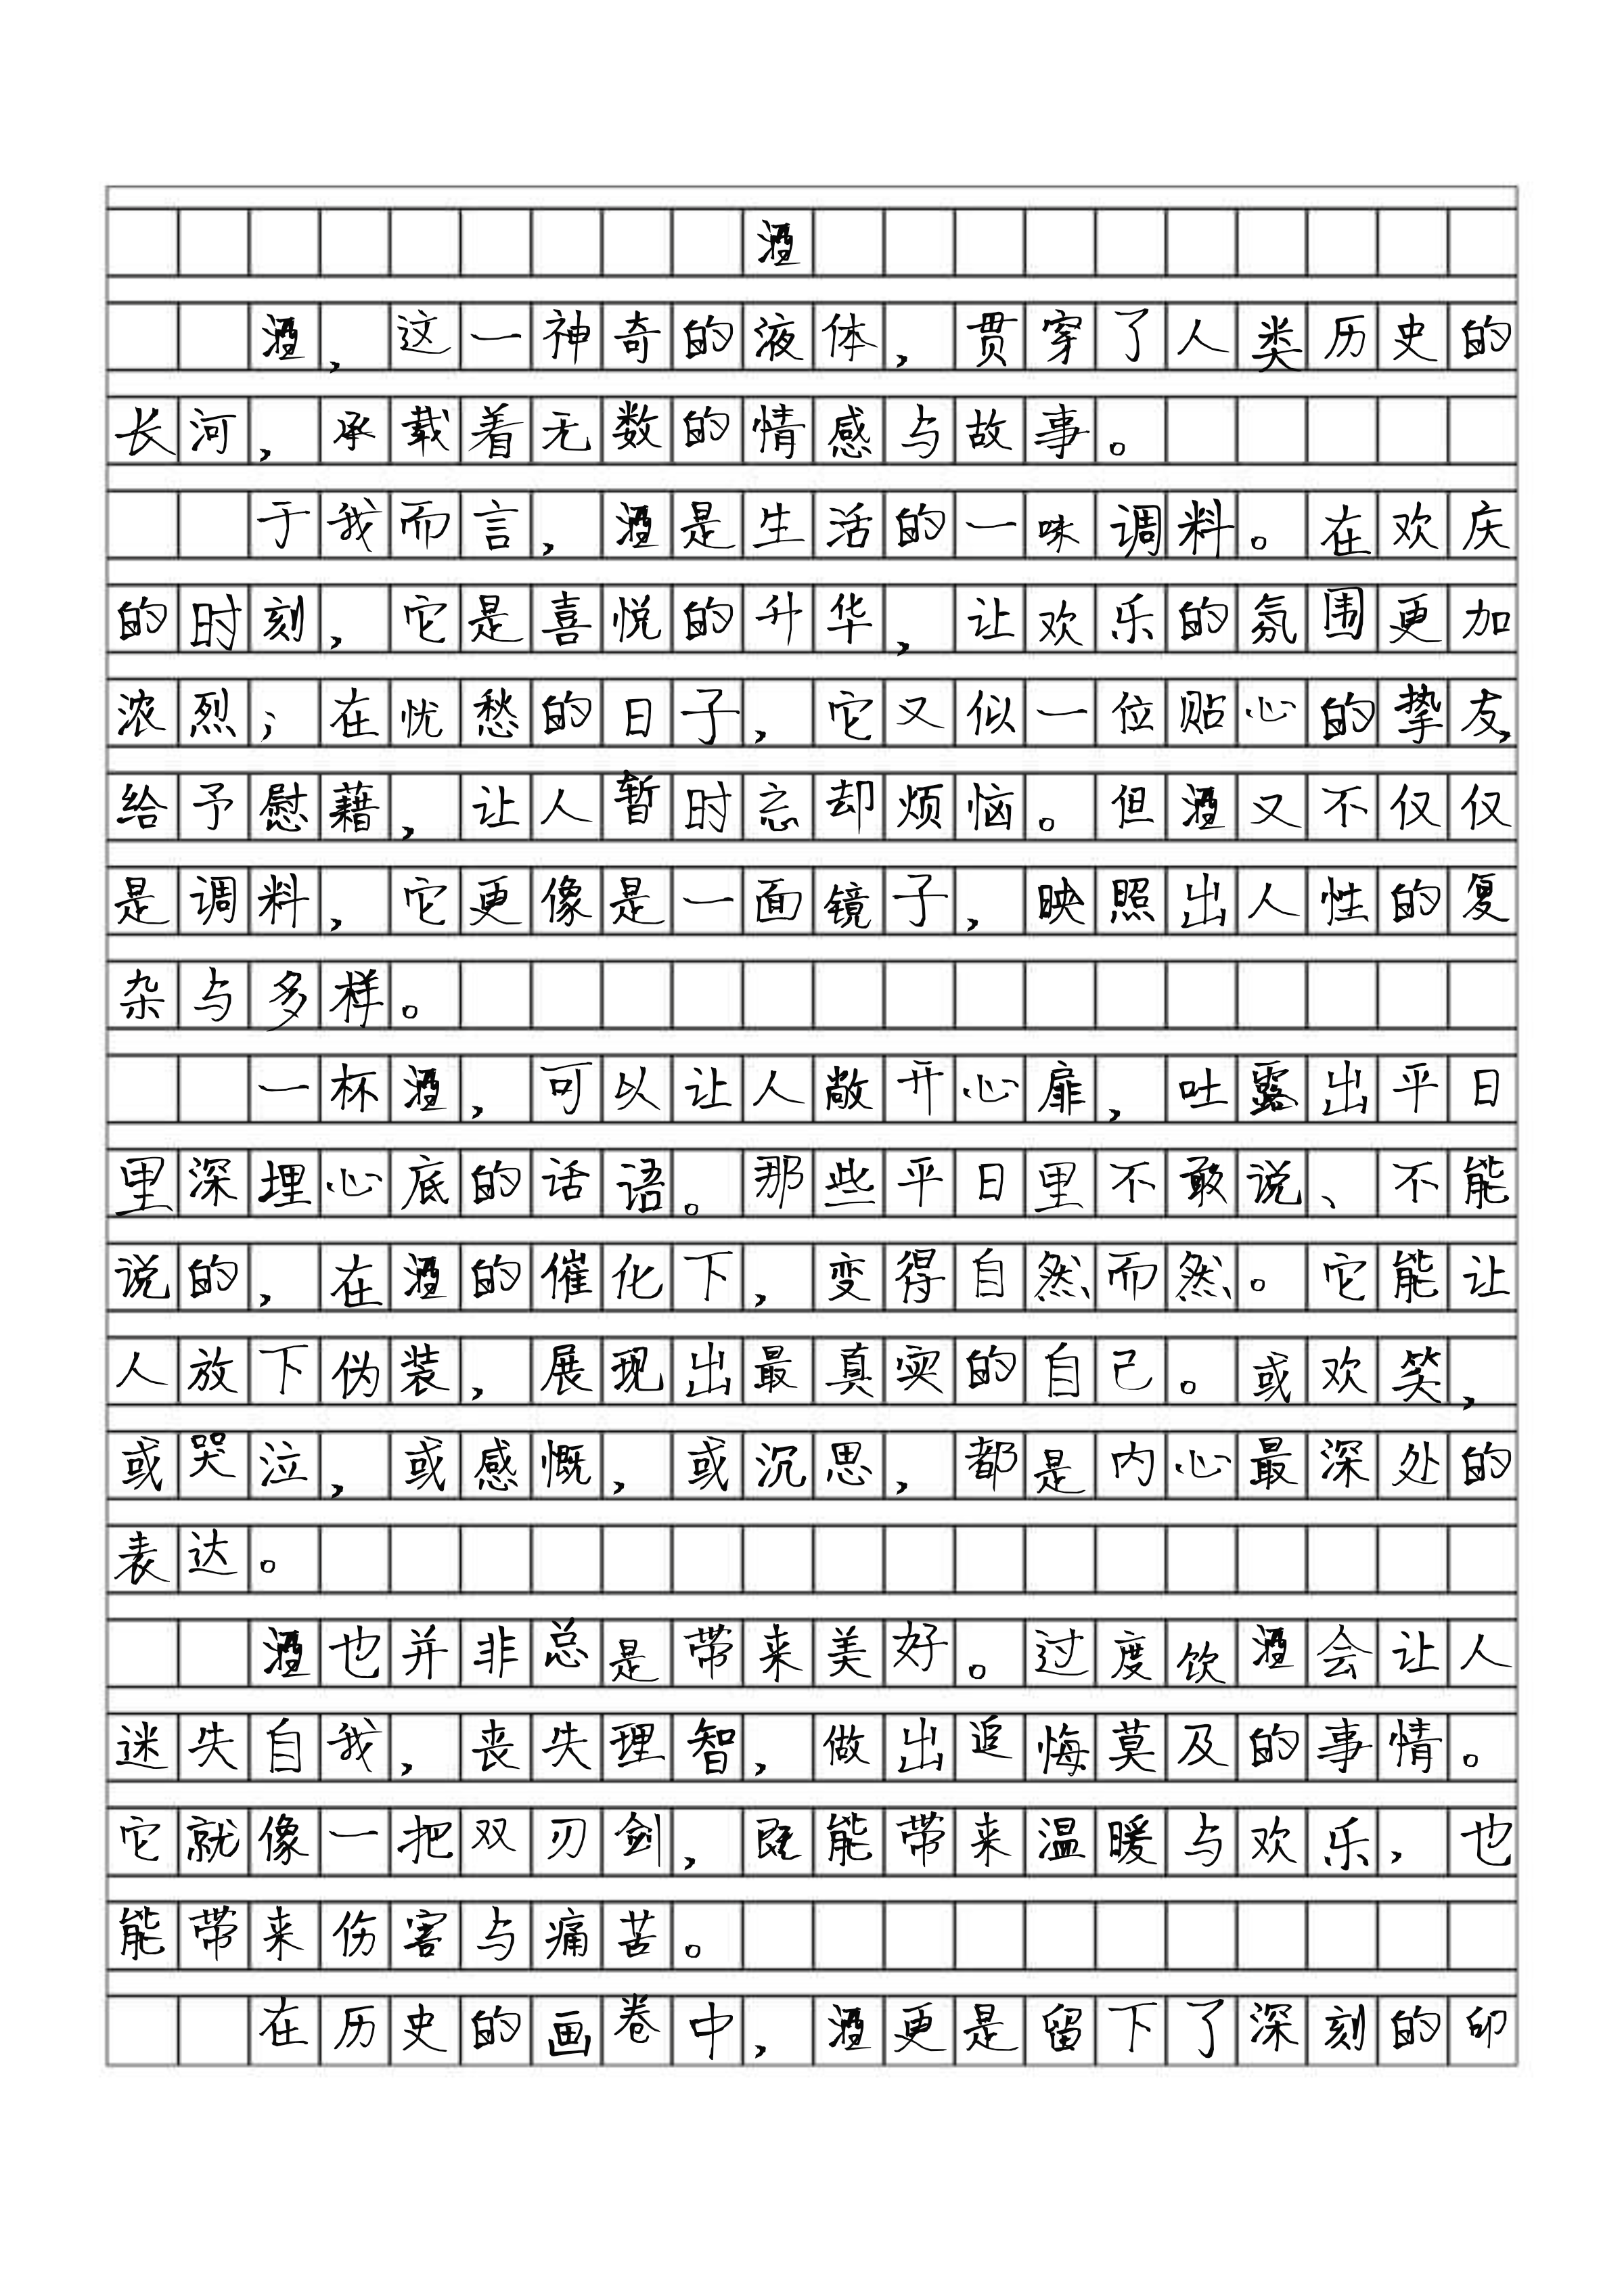 酒
酒，这一神奇的液体，贯穿了人类历史的
长河，承载着无数的情感与故事。
于我而言，酒是生活的一味调料。在欢庆
的时刻，它是喜悦的升华，让欢乐的氛围更加
浓烈；在忧愁的日子，它又似一位贴心的挚友，
给予慰藉，让人暂时忘却烦恼。但酒又不仅仅
是调料，它更像是一面镜子，映照出人性的复
杂与多样。
一杯酒，可以让人敞开心扉，吐露出平日
里深埋心底的话语。那些平日里不敢说、不能
说的，在酒的催化下，变得自然而然。它能让
人放下伪装，展现出最真实的自己。或欢笑，
或哭泣，或感慨，或沉思，都是内心最深处的
表达。
酒也并非总是带来美好。过度饮酒会让人
迷失自我，丧失理智，做出追悔莫及的事情。
它就像一把双刃剑，既能带来温暖与欢乐，也
能带来伤害与痛苦。
在历史的画卷中，酒更是留下了深刻的印